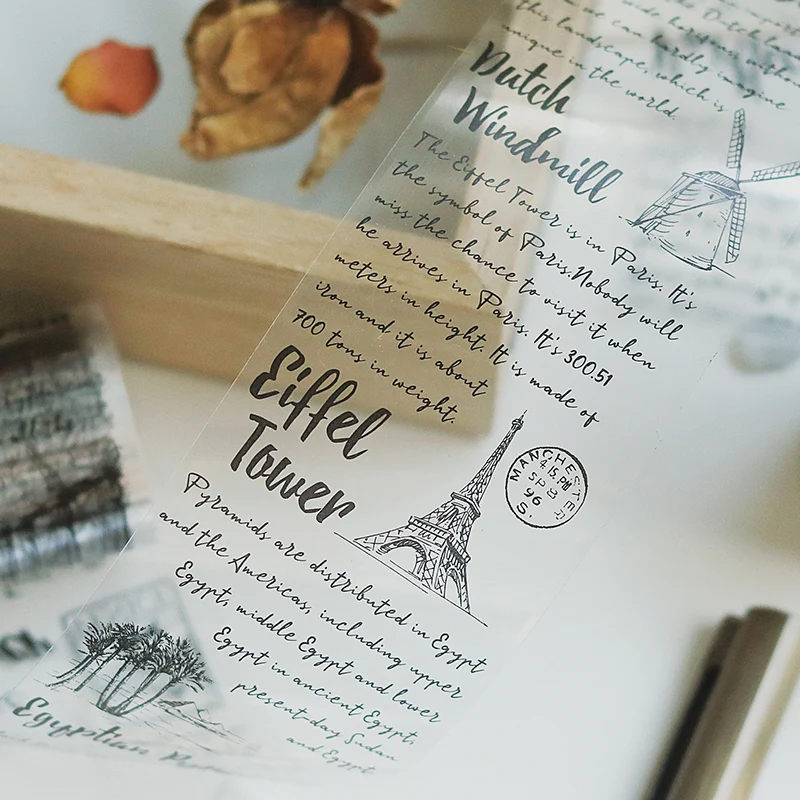 this landscape, which is
unique in the world.
Dutch
Windmill
The Eiffel Tower is in Paris. It's
the symbol of Paris.Nobody will
miss the chance to visit it when
he arrives in Paris. It's 300.51
meters in height. It is made of
iron and it is about
700 tons in weight.
Eiffel
Tower
MANCHESTER
4.15 PM
SP 8
96
S.
Pyramids are distributed in Egypt
and the Americas, including upper
Egypt, middle Egypt and lower
Egypt in ancient Egypt,
present-day Sudan
and Egypt.
Egyptian